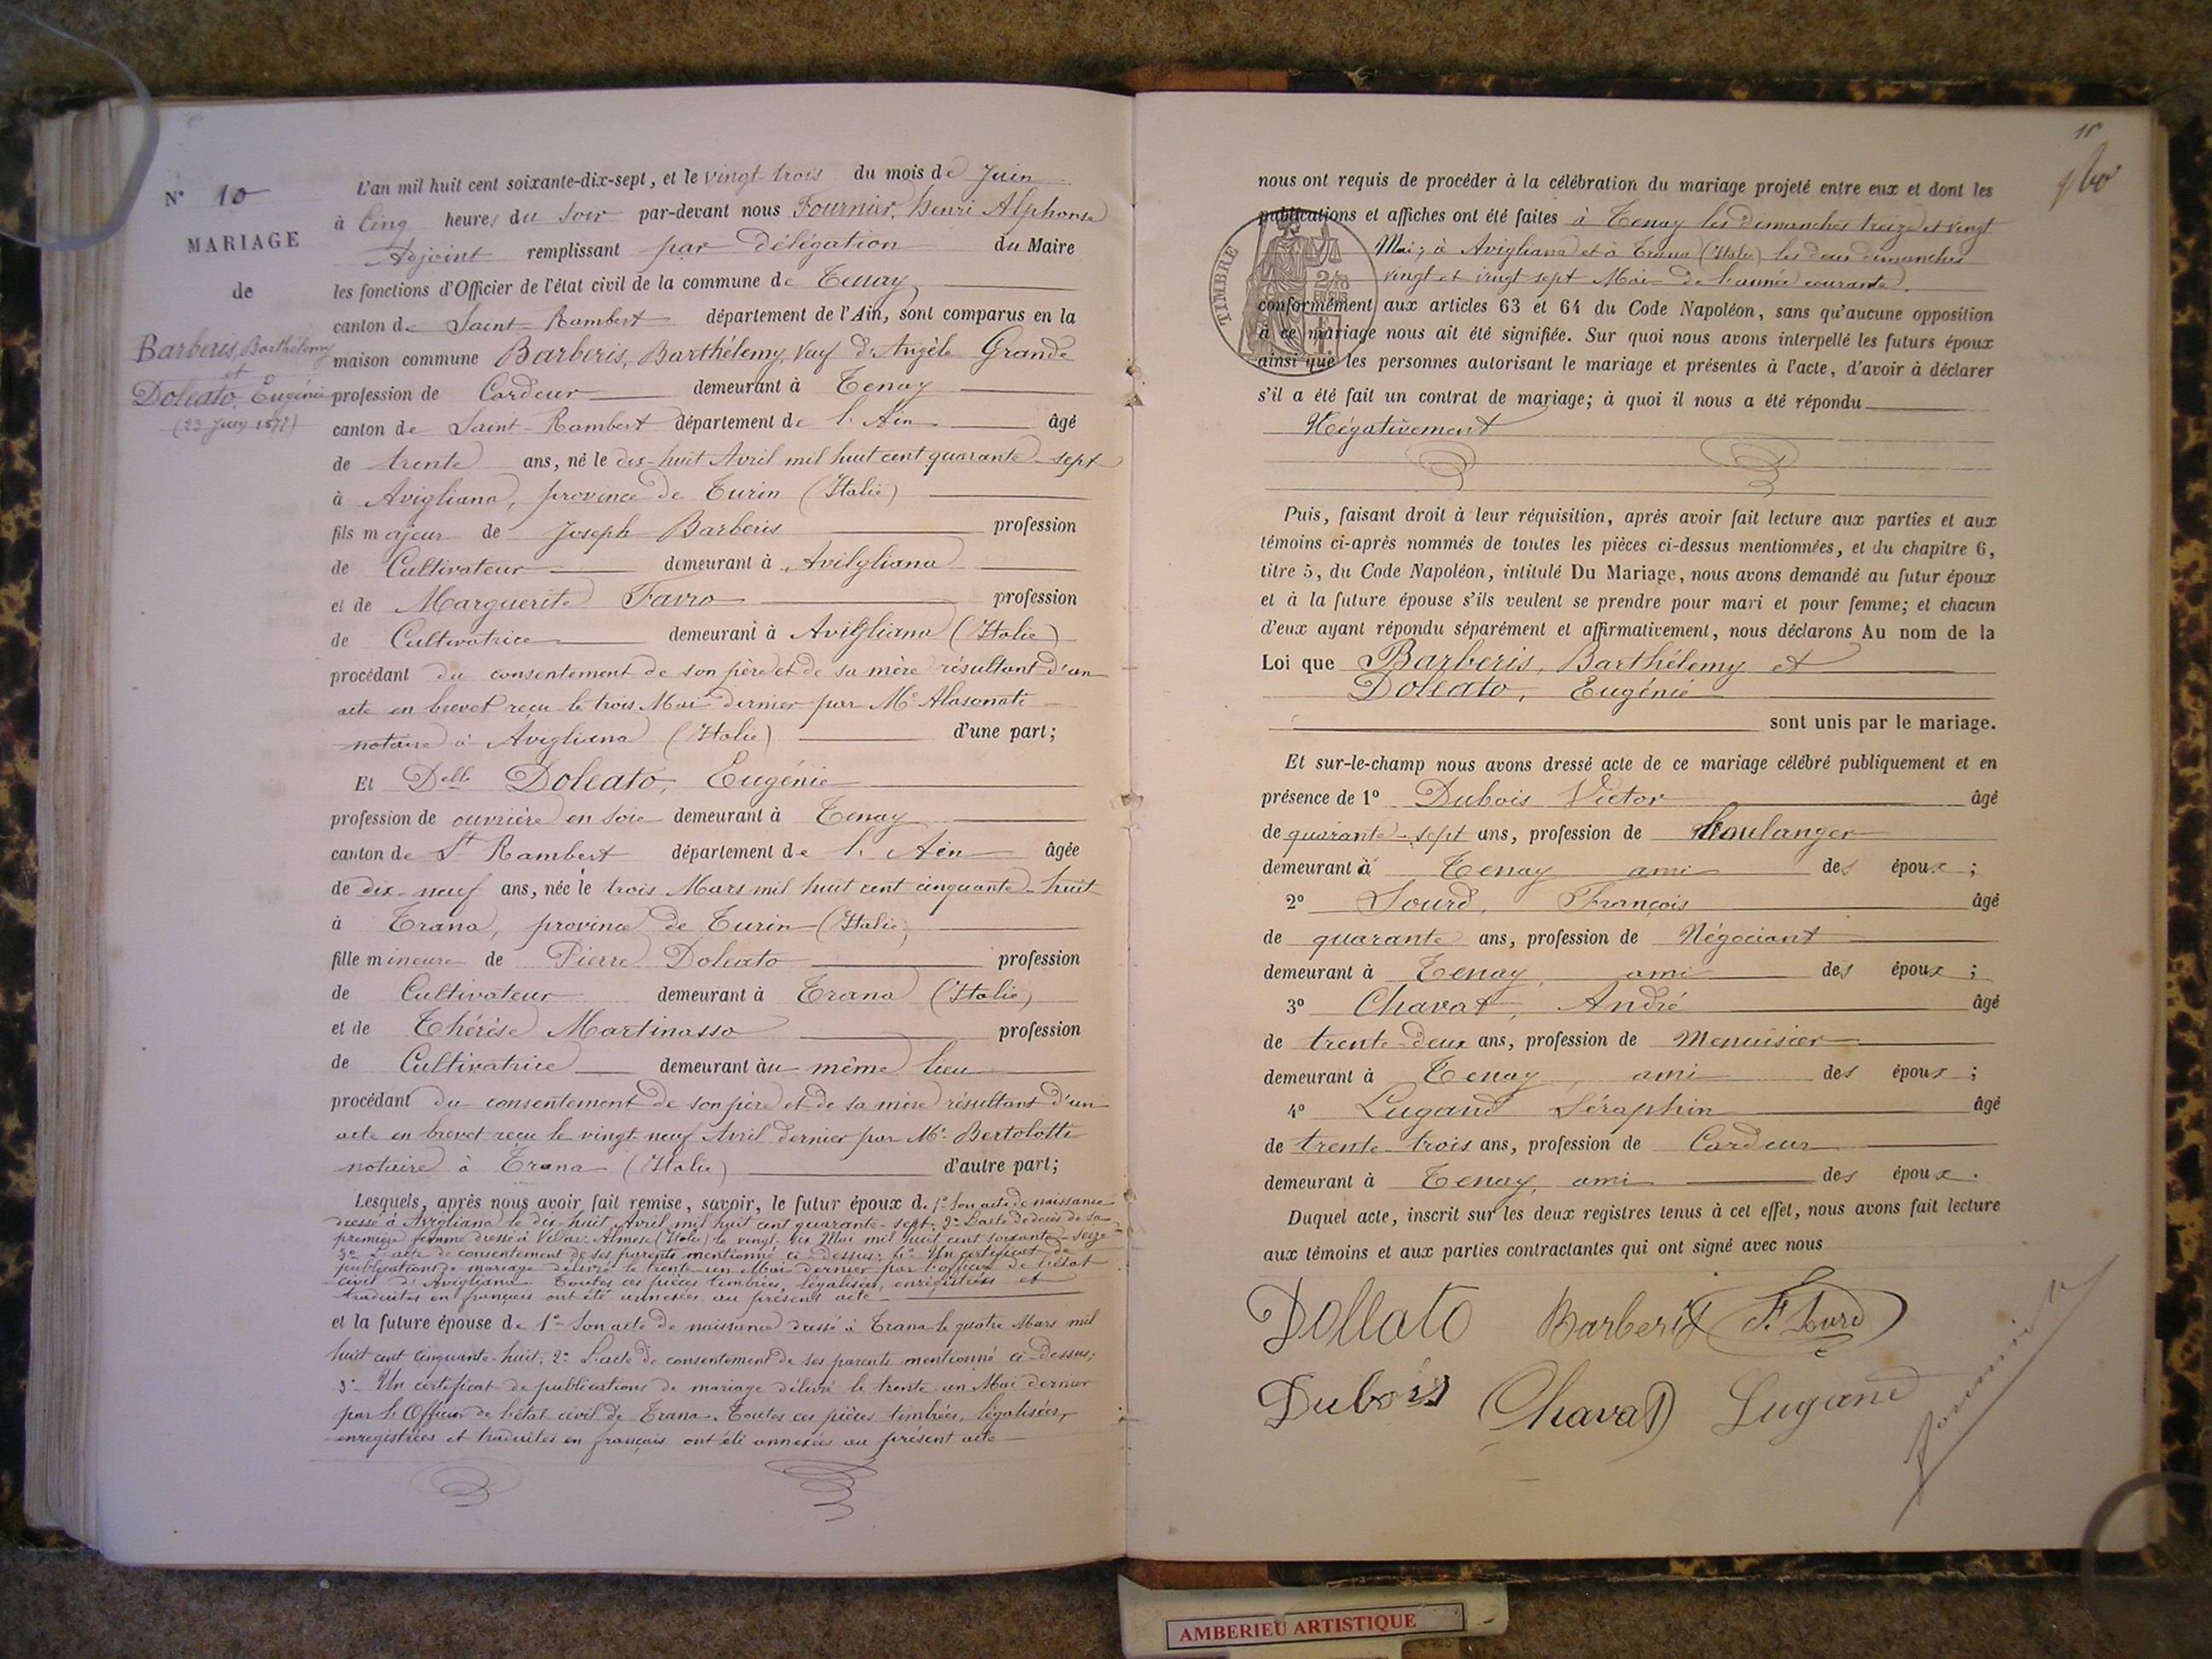 N° 10
MARIAGE
de
Barberis, Barthélemy
et
Doleato, Eugénie
(23 Juin 1877)
L'an mil huit cent soixante-dix-sept, et le vingt-trois du mois de Juin
à Cinq heures du soir par-devant nous Fournier, Henri Alphonse
Adjoint remplissant par délégation du Maire
les fonctions d'Officier de l'état civil de la commune de Tenay,
canton de Saint-Rambert département de l'Ain, sont comparus en la
maison commune Barberis, Barthélemy, Veuf d'Angèle Grande
profession de Cardeur demeurant à Tenay
canton de Saint-Rambert département de l'Ain âgé
de trente ans, né le dix-huit Avril mil huit cent quarante-sept
à Avigliana, province de Turin (Italie)
fils majeur de Joseph Barberis profession
de Cultivateur demeurant à Avilgliana
et de Marguerite Favro profession
de Cultivatrice demeurant à Avigliana (Italie)
procédant du consentement de son père et de sa mère résultant d'un
acte en brevet reçu le trois Mai dernier par Me Alasonati
notaire à Avigliana (Italie) d'une part;
Et Delle Doleato, Eugénie
profession de ouvrière en soie demeurant à Tenay
canton de St Rambert département de l'Ain âgée
de dix-neuf ans, née le trois Mars mil huit cent cinquante-huit
à Trana, province de Turin (Italie)
fille mineure de Pierre Doleato profession
de Cultivateur demeurant à Trana (Italie)
et de Thérèse Martinasso profession
de Cultivatrice demeurant au même lieu
procédant du consentement de son père et de sa mère résultant d'un
acte en brevet reçu le vingt-neuf Avril dernier par Me Bertolotti
notaire à Trana (Italie) d'autre part;
Lesquels, après nous avoir fait remise, savoir, le futur époux d. 1° Son acte de naissance
dressé à Avigliana le dix-huit Avril mil huit cent quarante-sept; 2° L'acte de décès de sa
première femme dressé à Villar-Almese (Italie) le vingt-six Mai mil huit cent soixante-seize
3° L'acte de consentement de ses parents mentionné ci-dessus; 4° Un certificat de
publications de mariage délivré le trente-un Mai dernier par l'officier de l'état
civil d'Avigliana. Toutes ces pièces timbrées, légalisées, enregistrées et
traduites en français ont été annexées au présent acte
et la future épouse de 1° Son acte de naissance dressé à Trana le quatre Mars mil
huit cent cinquante-huit; 2° L'acte de consentement de ses parents mentionné ci-dessus;
3° Un certificat de publications de mariage délivré le trente-un Mai dernier
par l'Officier de l'état civil de Trana. Toutes ces pièces timbrées, légalisées,
enregistrées et traduites en français ont été annexées au présent acte
11
nous ont requis de procéder à la célébration du mariage projeté entre eux et dont les
publications et affiches ont été faites à Tenay les dimanches treize et vingt
Mai; à Avigliana et à Trana (Italie) les deux dimanches
vingt et vingt sept Mai de l'année courante.
TIMBRE
conformément aux articles 63 et 64 du Code Napoléon, sans qu'aucune opposition
à ce mariage nous ait été signifiée. Sur quoi nous avons interpellé les futurs époux
ainsi que les personnes autorisant le mariage et présentes à l'acte, d'avoir à déclarer
s'il a été fait un contrat de mariage; à quoi il nous a été répondu
Négativement
Puis, faisant droit à leur réquisition, après avoir fait lecture aux parties et aux
témoins ci-après nommés de toutes les pièces ci-dessus mentionnées, et du chapitre 6,
titre 5, du Code Napoléon, intitulé Du Mariage, nous avons demandé au futur époux
et à la future épouse s'ils veulent se prendre pour mari et pour femme; et chacun
d'eux ayant répondu séparément et affirmativement, nous déclarons Au nom de la
Loi que Barberis, Barthélemy et
Doleato, Eugénie
sont unis par le mariage.
Et sur-le-champ nous avons dressé acte de ce mariage célébré publiquement et en
présence de 1° Dubois Victor âgé
de quarante-sept ans, profession de boulanger
demeurant à Tenay ami des époux;
2° Sourd, François âgé
de quarante ans, profession de Négociant
demeurant à Tenay, ami des époux;
3° Chavat, André âgé
de trente-deux ans, profession de Menuisier
demeurant à Tenay, ami des époux;
4° Lugand Séraphin âgé
de trente-trois ans, profession de Cardeur
demeurant à Tenay, ami des époux.
Duquel acte, inscrit sur les deux registres tenus à cet effet, nous avons fait lecture
aux témoins et aux parties contractantes qui ont signé avec nous
Dollato Barberis F. Sourd
Dubois Chavat Lugand
Fournier
AMBERIEU ARTISTIQUE